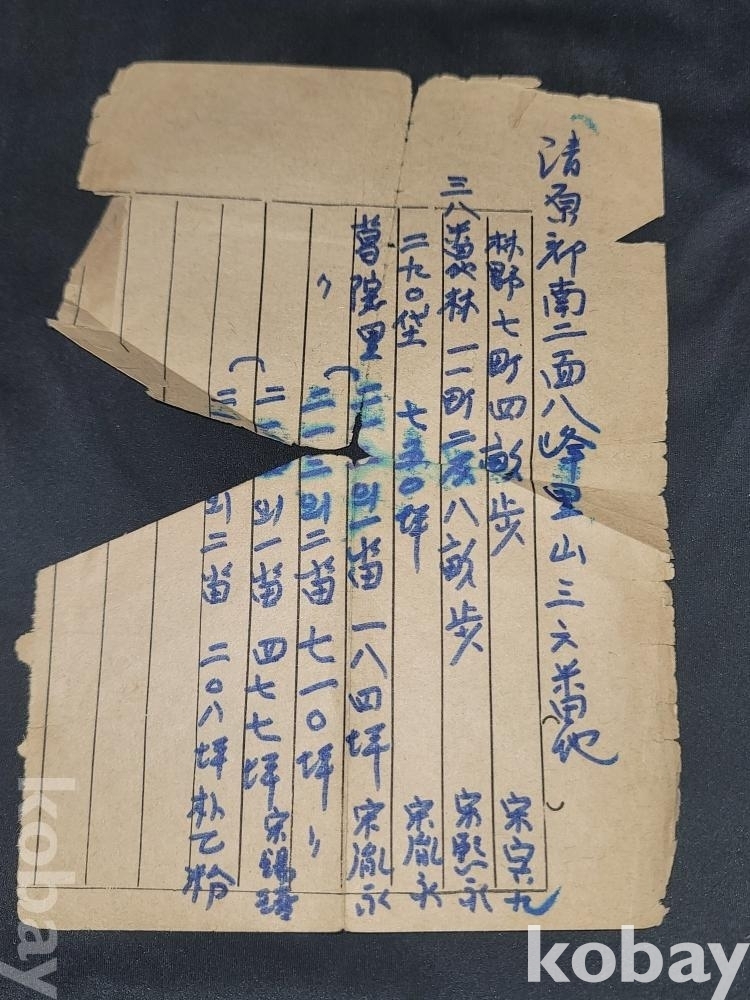 淸原郡南二面八峰里山三六番地
林野七町四畝步 宋
三八番地林一一町二反八畝步 宋熙永
二九〇垈 七五〇坪 宋胤永
葛院里 의一畓 一八四坪 宋胤永
〃 二一二의二畓 七一〇坪 〃
의一畓 四七七坪 宋錫
의二畓 二〇八坪 朴乙粉
kobay
kobay